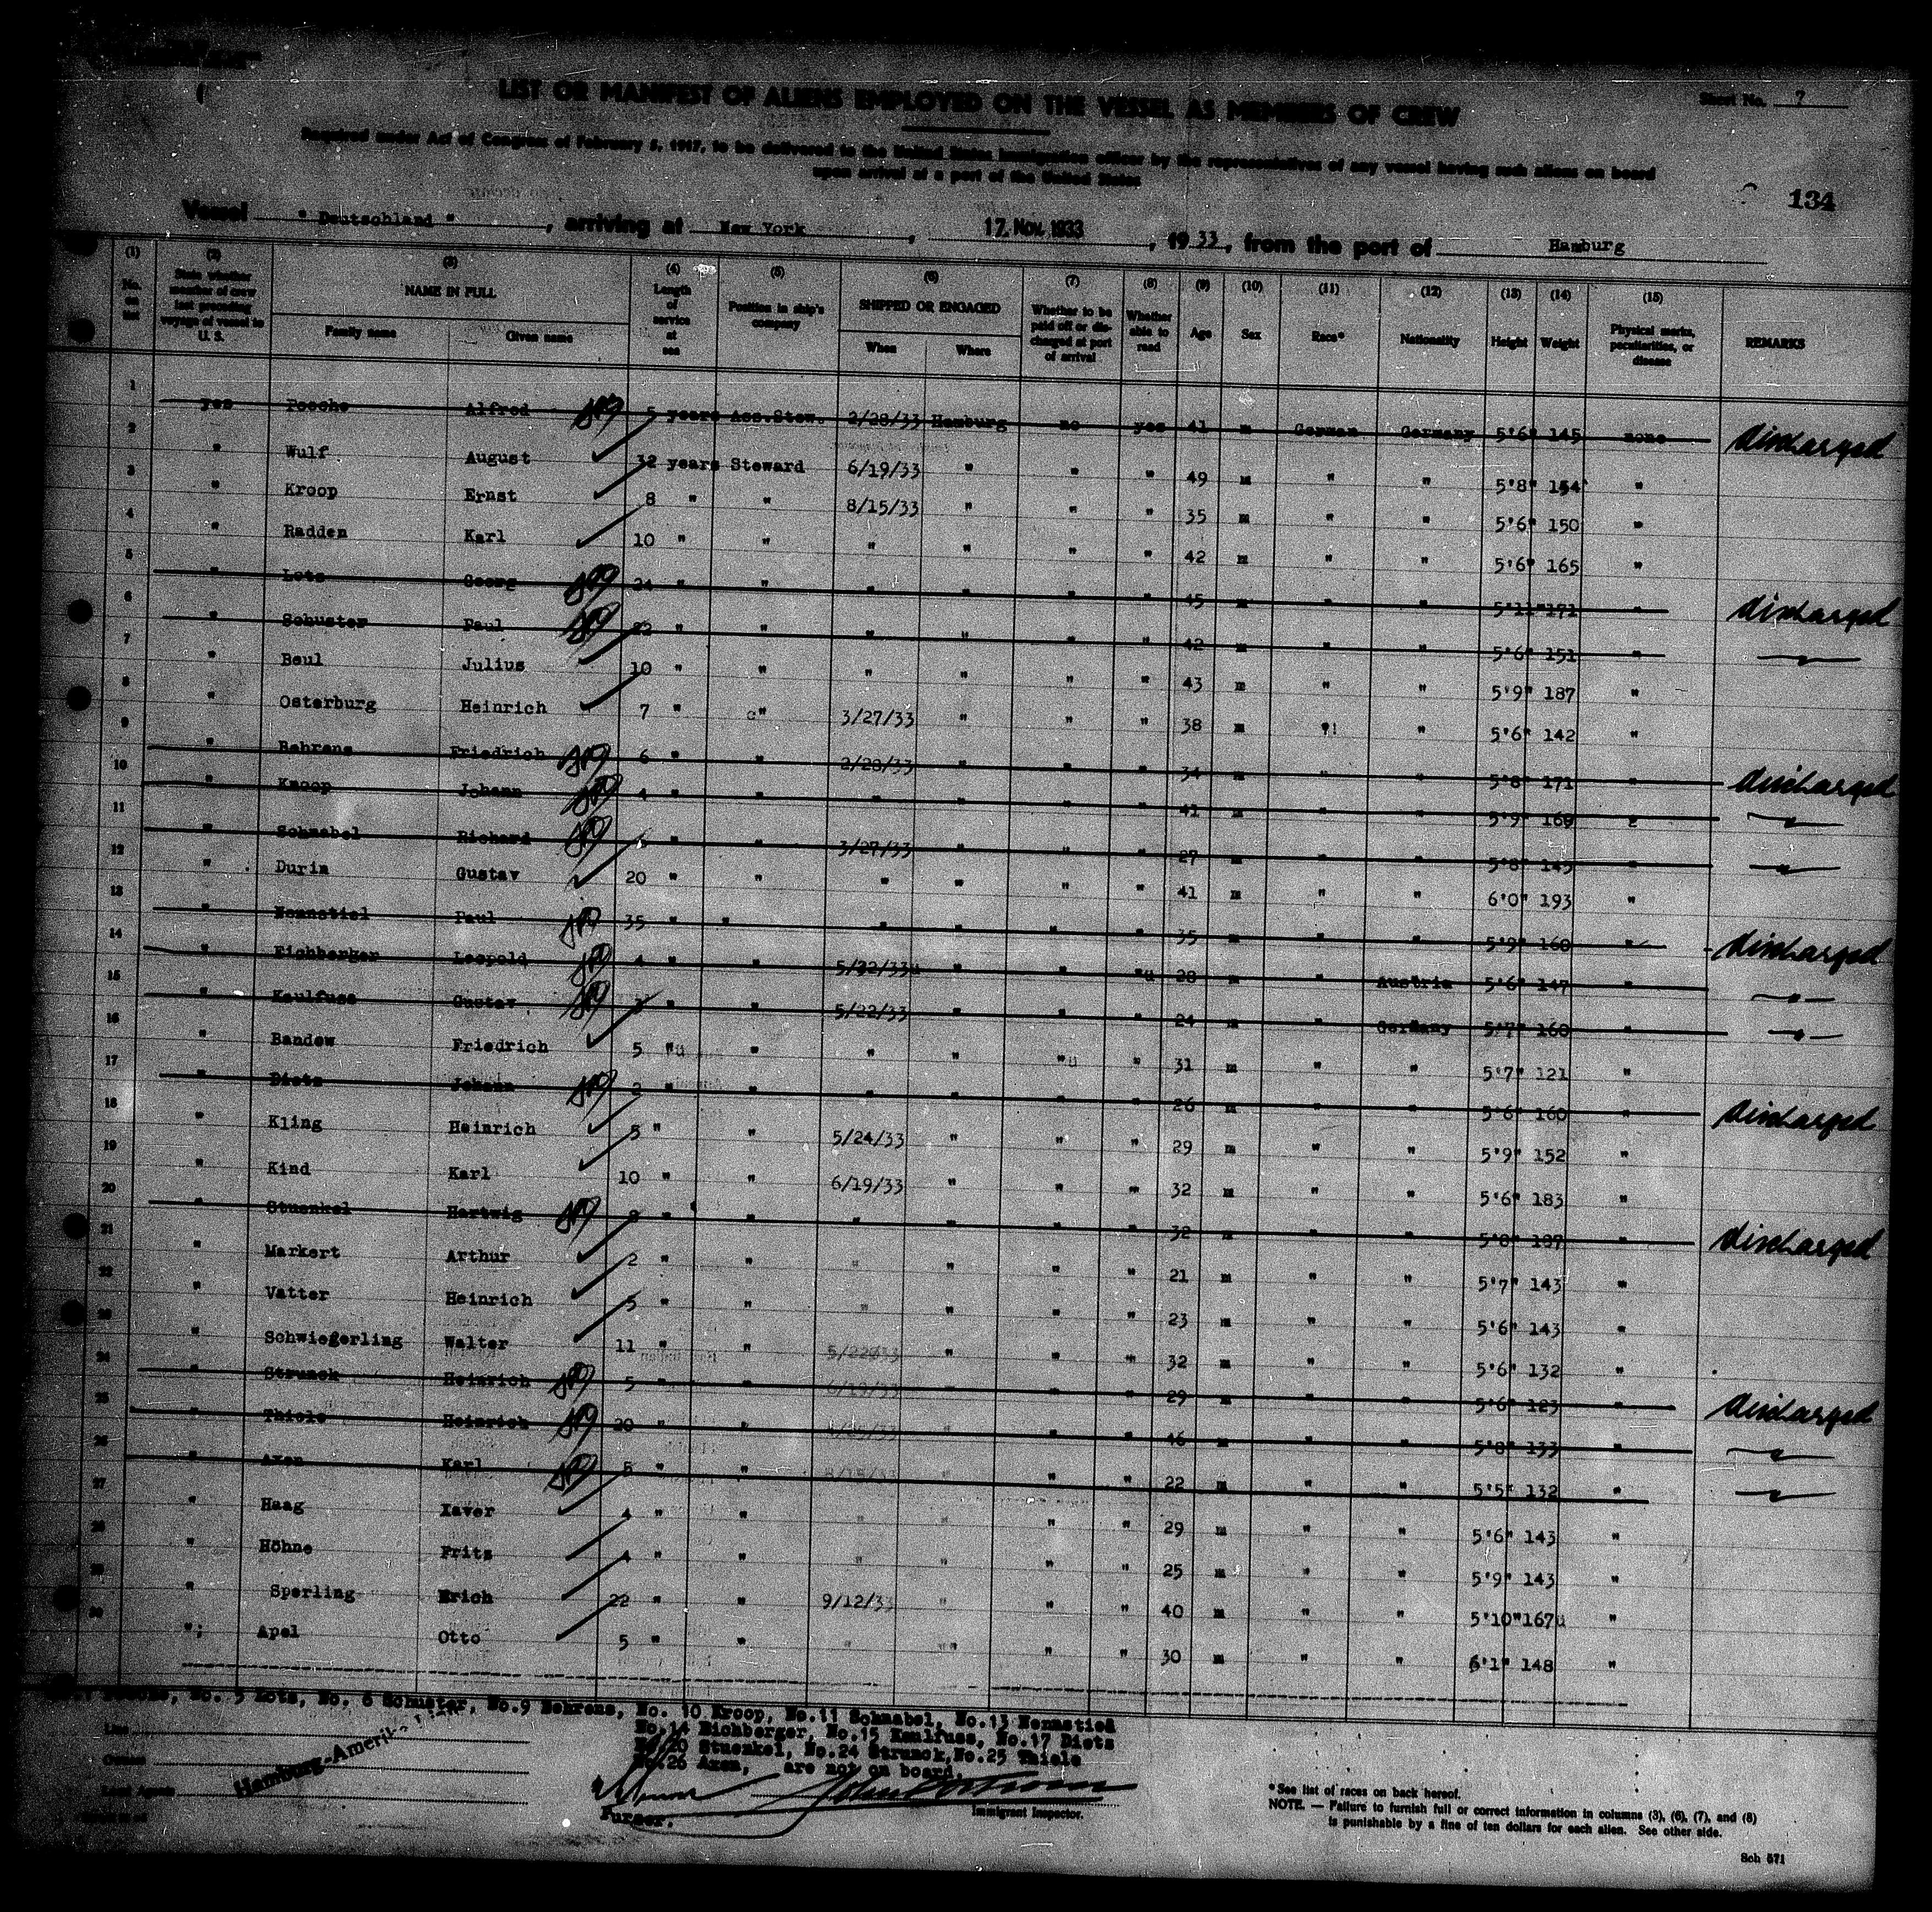 LIST OR MANIFEST OF ALIENS EMPLOYED ON THE VESSEL AS MEMBERS OF CREW
Sheet No. 7
Required under Act of Congress of February 5, 1917, to be delivered to the United States immigration officer by the representatives of any vessel having such aliens on board
upon arrival at a port of the United States
134
Vessel " Deutschland ", arriving at New York, 17. Nov. 1933, 1933, from the port of Hamburg
(1) (2) (3) (4) (5) (6) (7) (8) (9) (10) (11) (12) (13) (14) (15)
No. on list State whether member of crew last preceding voyage of vessel to U. S. NAME IN FULL Family name Given name Length of service at sea Position in ship's company SHIPPED OR ENGAGED When Where Whether to be paid off or discharged at port of arrival Whether able to read Age Sex Race* Nationality Height Weight Physical marks, peculiarities, or disease REMARKS
1 yes Alfred 5 years Ass.Stew. 2/28/33 Hamburg no yes 41 m German Germany 5'6" 145 none discharged
2 " Wulf August 32 years Steward 6/19/33 " " " 49 m " " 5'8" 154 "
3 " Kroop Ernst 8 " " 8/15/33 " " " 35 m " " 5'6" 150 "
4 " Radden Karl 10 " " " " " " 42 m " " 5'6" 165 "
5 " Lotz Georg 24 " " " " " " 45 m " " 5'11" 171 " discharged
6 " Schuster Paul 22 " " " " " " 42 m " " 5'6" 151 " "
7 " Beul Julius 10 " " " " " " 43 m " " 5'9" 187 "
8 " Osterburg Heinrich 7 " " 3/27/33 " " " 38 m " " 5'6" 142 "
9 " Behrens Friedrich 6 " " 2/28/33 " " " 34 m " " 5'8" 171 " discharged
10 " Kroop Johann 4 " " " " " " 41 m " " 5'9" 160 " "
11 " Schnabel Richard " " 3/27/33 " " " 27 m " " 5'8" 145 " "
12 " Durin Gustav 20 " " " " " " 41 m " " 6'0" 193 "
13 " Nennstiel Paul 35 " " " " " " 35 m " " 5'9" 160 " discharged
14 " Eichberger Leopold 4 " " 5/22/33 " " " 28 " Austria 5'6" 147 " "
15 " Kaulfuss Gustav " " 5/22/33 " " " 24 m " Germany 5'7" 160 " "
16 " Bandow Friedrich 5 " " " " " " 31 m " " 5'7" 121 "
17 " Dietz Johann 2 " " " " " " 26 m " " 5'6" 160 " discharged
18 " Kling Heinrich 5 " " 5/24/33 " " " 29 m " " 5'9" 152 "
19 " Kind Karl 10 " " 6/19/33 " " " 32 m " " 5'6" 183 "
20 " Stuenkel Hartwig 8 " " " " " " 32 m " " 5'8" 187 " discharged
21 " Markert Arthur 2 " " " " " " 21 m " " 5'7" 143 "
22 " Vatter Heinrich 5 " " " " " " 23 m " " 5'6" 143 "
23 " Schwiegerling Walter 11 " " 5/22/33 " " " 32 m " " 5'6" 132 "
24 " Strunck Heinrich 5 " " 6/19/33 " " " 29 m " " 5'6" 123 " discharged
25 " Thiele Heinrich 20 " " " " " 46 m " " 5'8" 133 " "
26 " Axen Karl 5 " " 8/15/33 " " " 22 m " " 5'5" 132 " "
27 " Haag Xaver 4 " " " " " " 29 m " " 5'6" 143 "
28 " Höhne Fritz 4 " " " " " " 25 m " " 5'9" 143 "
29 " Sperling Erich 22 " " 9/12/33 " " " 40 m " " 5'10" 167 "
30 " Apel Otto 5 " " " " " " 30 m " " 6'1" 148 "
No. 5 Lotz, No. 6 Schuster, No.9 Behrens, No. 10 Kroop, No.11 Schnabel, No.13 Nennstiel
No.14 Eichberger, No.15 Kaulfuss, No.17 Dietz
No.20 Stuenkel, No.24 Strunck, No.25 Thiele
No.26 Axen, are not on board.
Line
Owners
Local Agents
Hamburg-Amerika Linie
Purser.
Immigrant Inspector.
*See list of races on back hereof.
NOTE. — Failure to furnish full or correct information in columns (3), (6), (7), and (8)
is punishable by a fine of ten dollars for each alien. See other side.
Sch 571